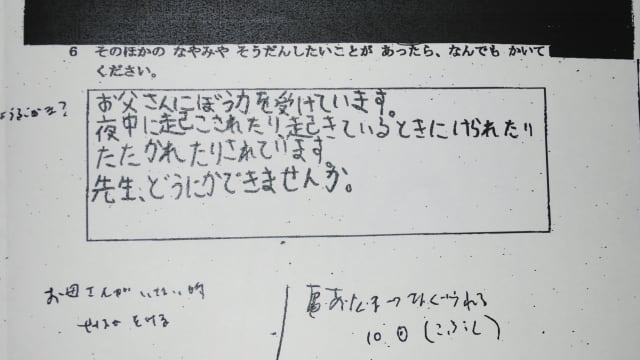 6 そのほかの なやみや そうだんしたいことが あったら、なんでも かいて
ください。
お父さんにぼう力を受けています。
夜中に起こされたり起きているときにけられたり
たたかれたりされています。
先生、どうにかできませんか。
お母さんがいない時
あたまつ
10回(こぶし)